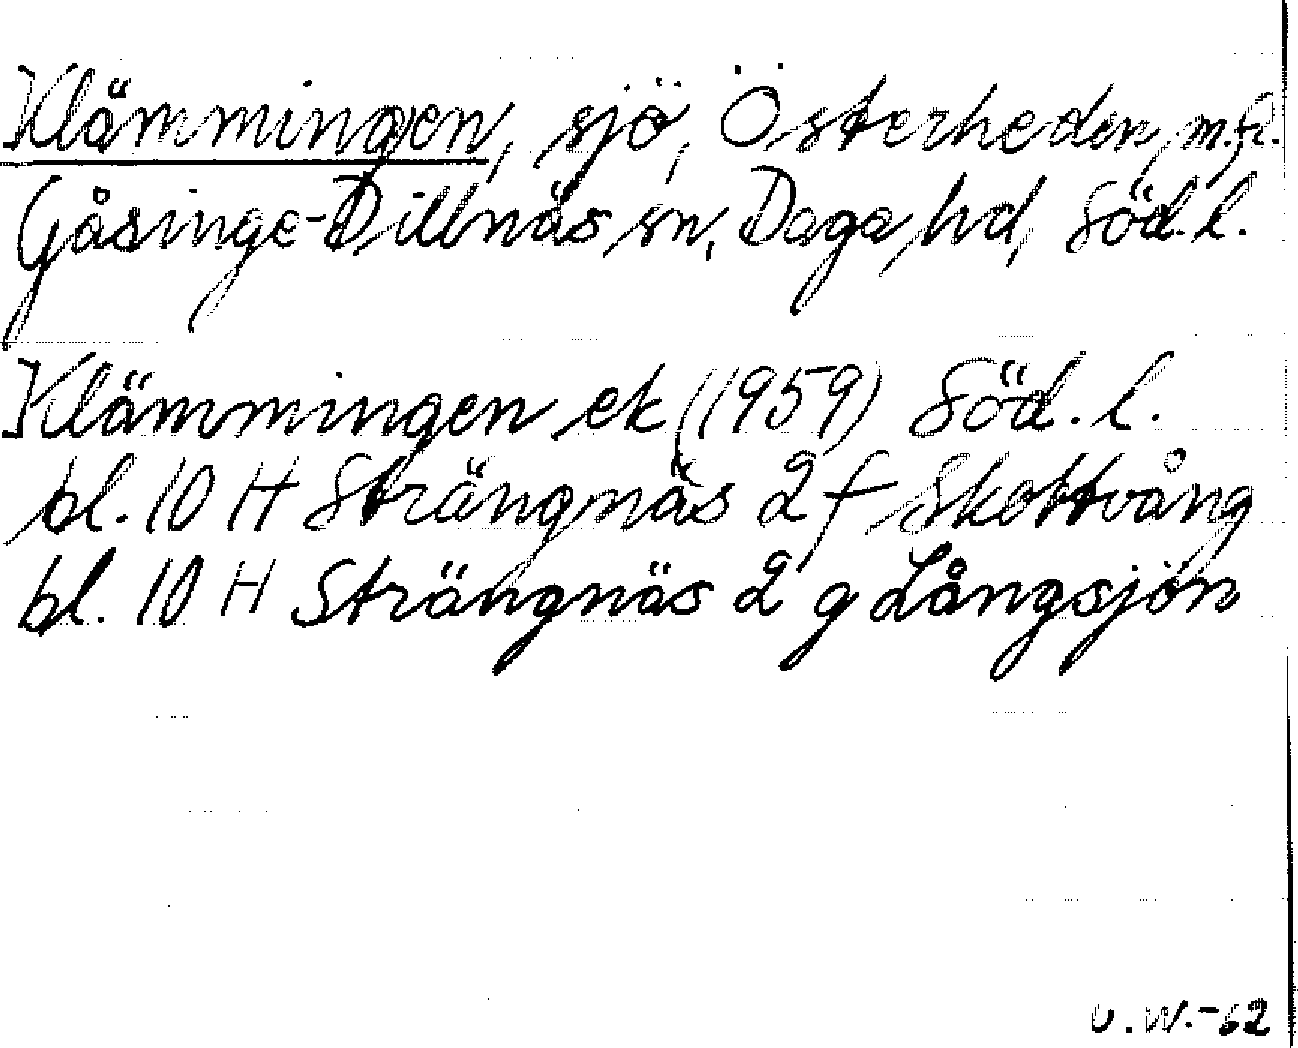 Klämmingen, sjö, Österheden, m.fl.
Gåsinge-Dillnäs sn, Daga hd, Söd.l.
Klämmingen ek (1959) Söd. l.
bl. 10 H Strängnäs 2 f Skottvång
bl. 10 H Strängnäs 2 g Långsjön
U.W.-62